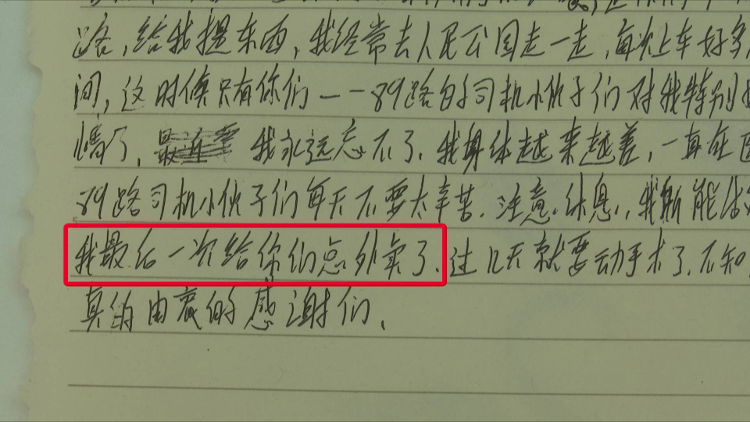 路,给我提东西,我经常去人民公园走一走,每次上车好多
间,这时候只有你们——89路的司机小伙子们对我特别
情了,最近 我永远忘不了.我身体越来越差,一直在医
89路司机小伙子们每天不要太辛苦.注意休息,我所能
我最后一次给你们点外卖了.过几天就要动手术了,不知
真的由衷的感谢们.